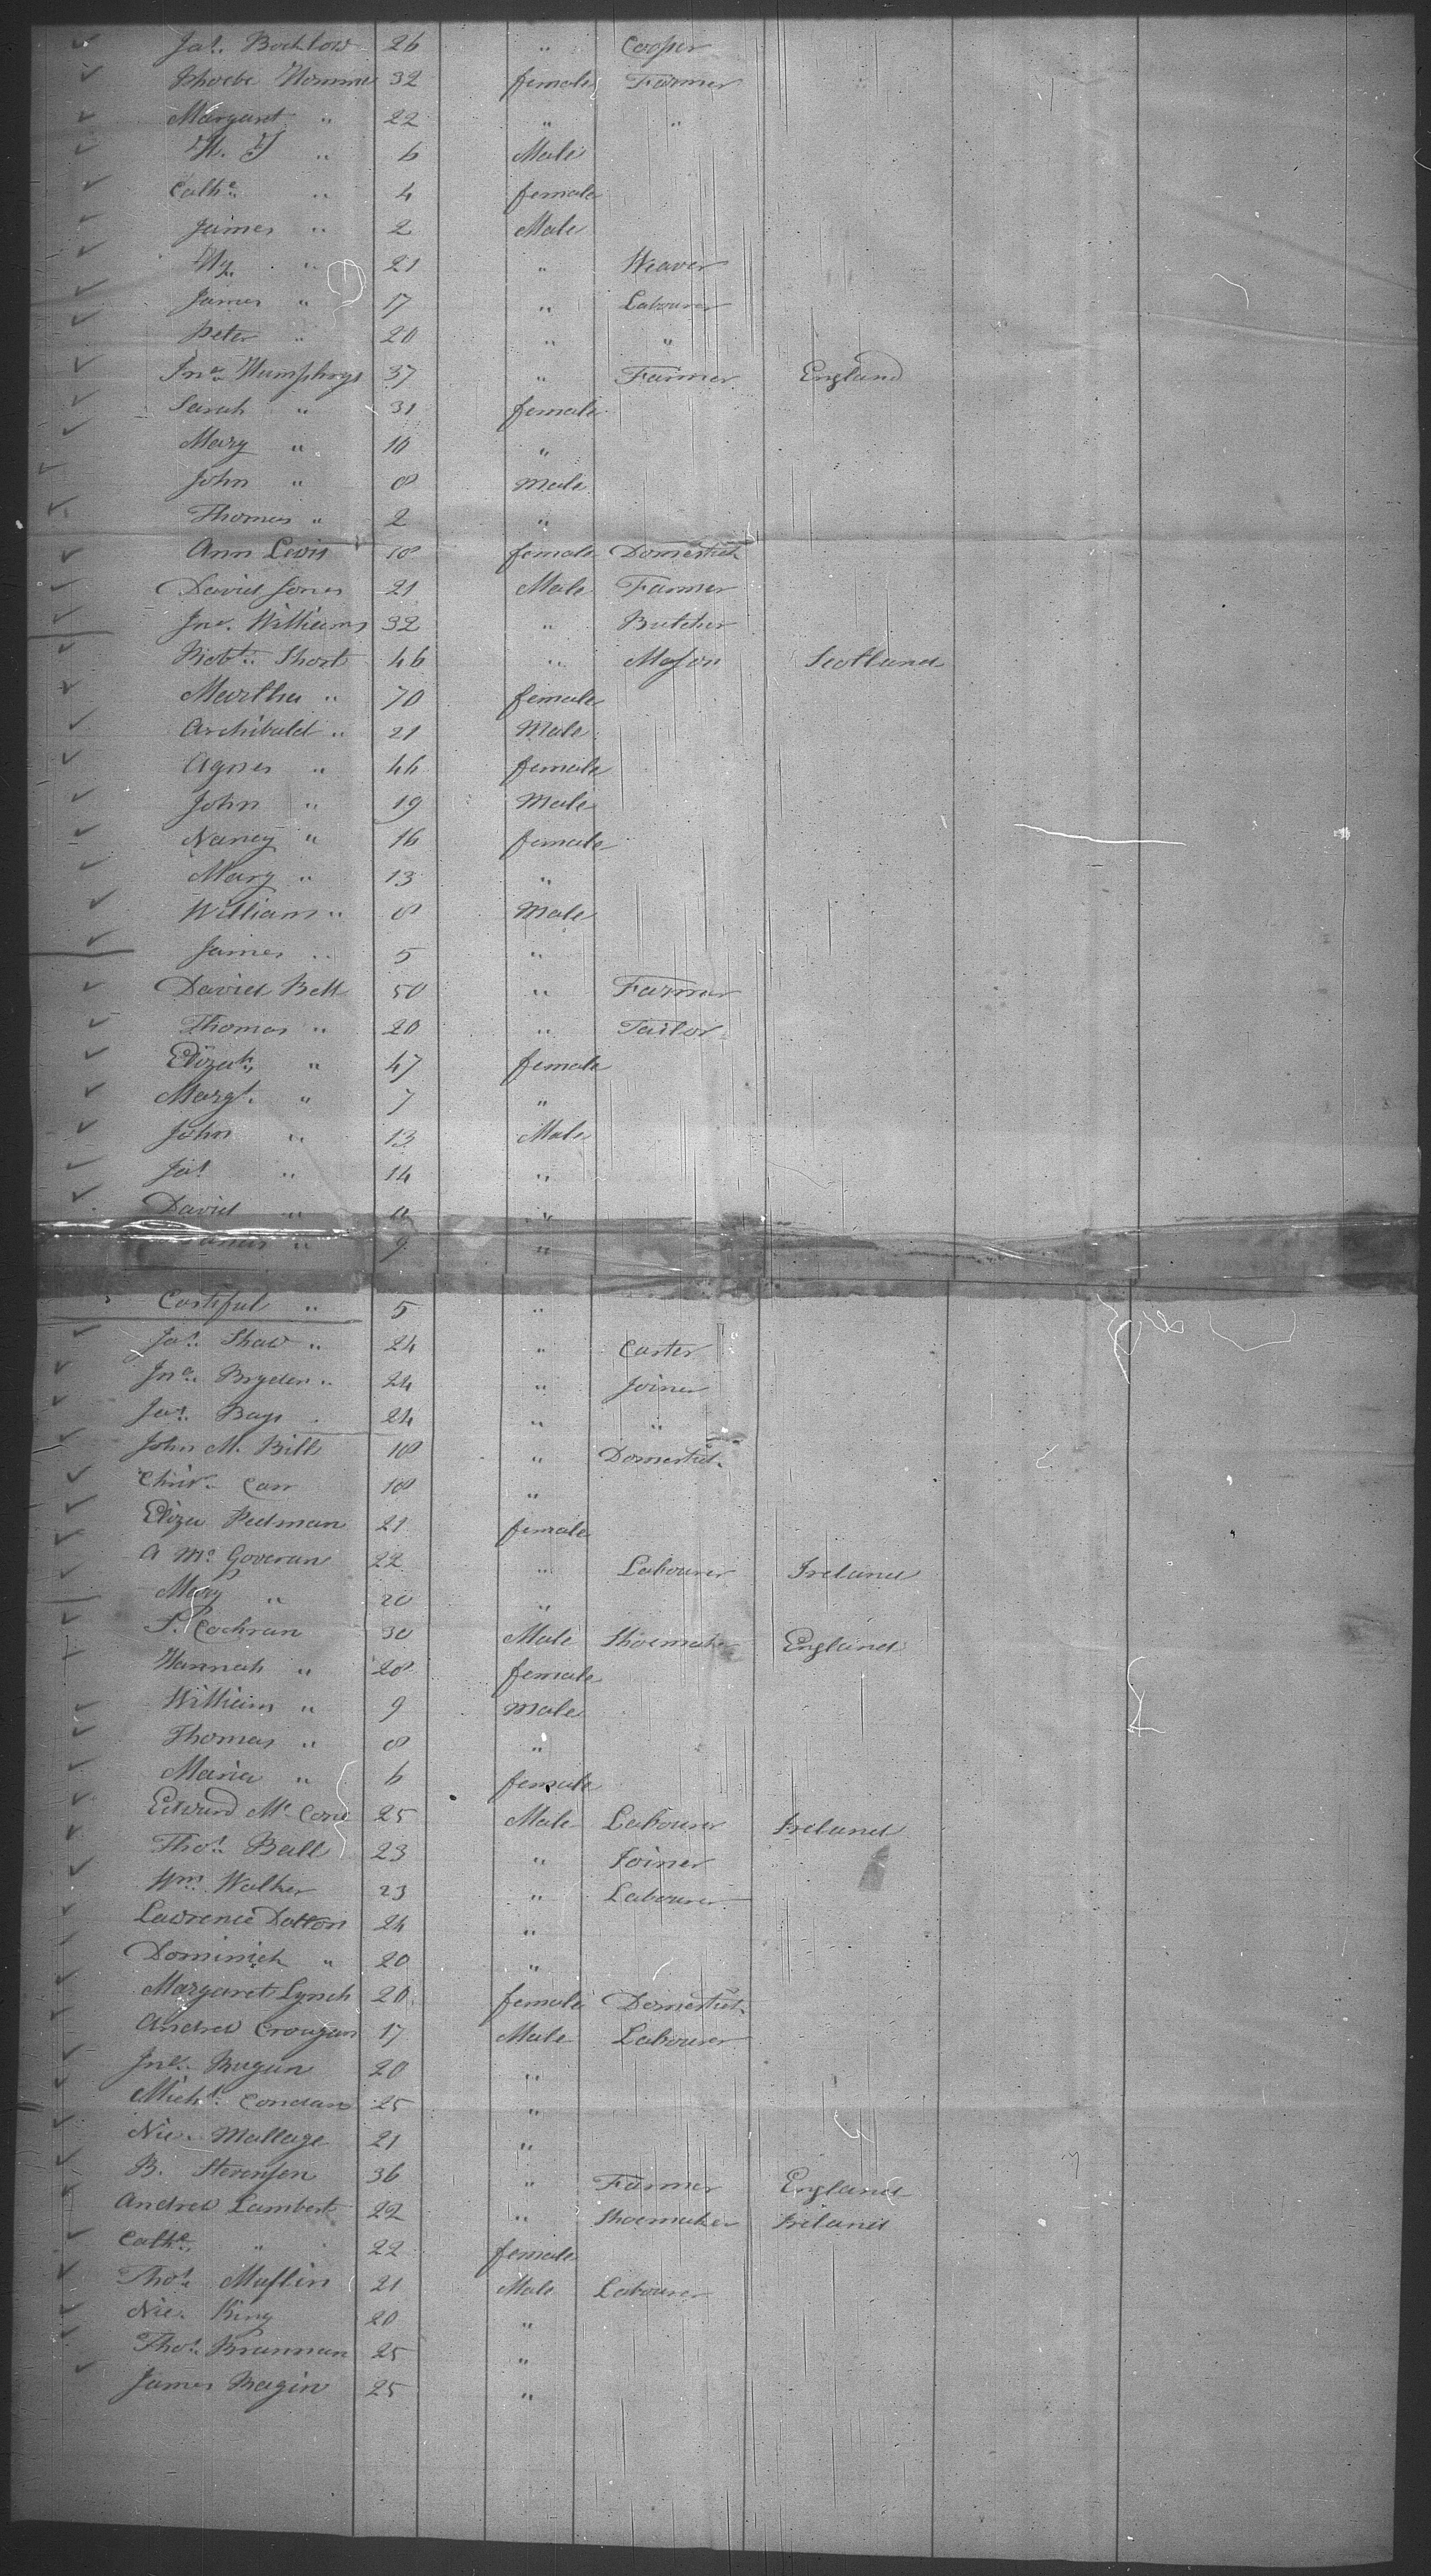 Jas. Bocklow 26 " Cooper
Phoebe Homme 32 female Farmer
Margaret " 22 " "
H. J " 6 Male
Cathe " 4 female
James " 2 Male
Hy " 21 " Weaver
James " 17 " Labourer
Peter " 20 " "
Jno. Humphrys 37 " Farmer England
Sarah " 31 female
Mary " 10 "
John " 8 Male
Thomas " 2 "
Ann Levis 18 female Domestick
David Jones 21 Male Farmer
Jno. Williams 32 " Butcher
Robt. Short 46 " Mason Scotland
Martha " 70 female
Archibald " 21 Male
Agnes " 44 female
John " 19 Male
Nancy " 16 female
Mary " 13 "
William " 8 Male
James " 5 "
David Bell 50 " Farmer
Thomas " 20 " Tailor
Elizath " 47 female
Margt. " 7 "
John " 13 Male
Jas " 14 "
David " 11 "
" 9 "
" 5 "
Jas. Shaw " 24 " Carter
Jno. Bryden " 24 " Joiner
Jas. Bays 24 " "
John M. Bill 18 " Domestick
Chrisr. Carr 18 "
Eliza Pedman 21 female
A Mc Goveran 22 " Labourer Ireland
Mary " 20 "
P. Cochran 30 Male Shoemaker England
Hannah " 28 female
William " 9 Male
Thomas " 8 "
Maria " 6 female
Edward Mc Cone 25 Male Labourer Ireland
Thos. Ball 23 " Joiner
Wm. Walker 23 " Labourer
Lawrence Dolton 24 "
Dominick " 20 "
Margaret Lynch 20 female Domestick
Andrew Crougan 17 Male Labourer
Jno. Bugin 20 "
Michl. Condan 25 "
Nic. Mallage 21 "
B. Stevenson 36 " Farmer England
Andrew Lambert 22 " Shoemaker Ireland
Cathe. " 22 female
Thos. Muflin 21 Male Labourer
Nic. King 20 "
Thos. Brannan 25 "
James Bagin 25 "